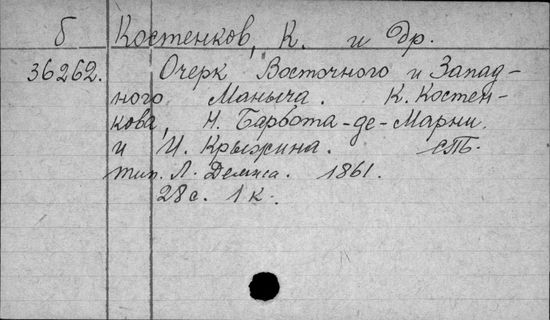 б Костенков, К. и Др.
36262. Очерк Восточного и Запад-
ного Маныча. К. Костен-
кова, Н. Барбота-де-Марни.
и И. Крыжина. СПБ.
тип. Л. Демиса. 1861.
28 с. 1 к.